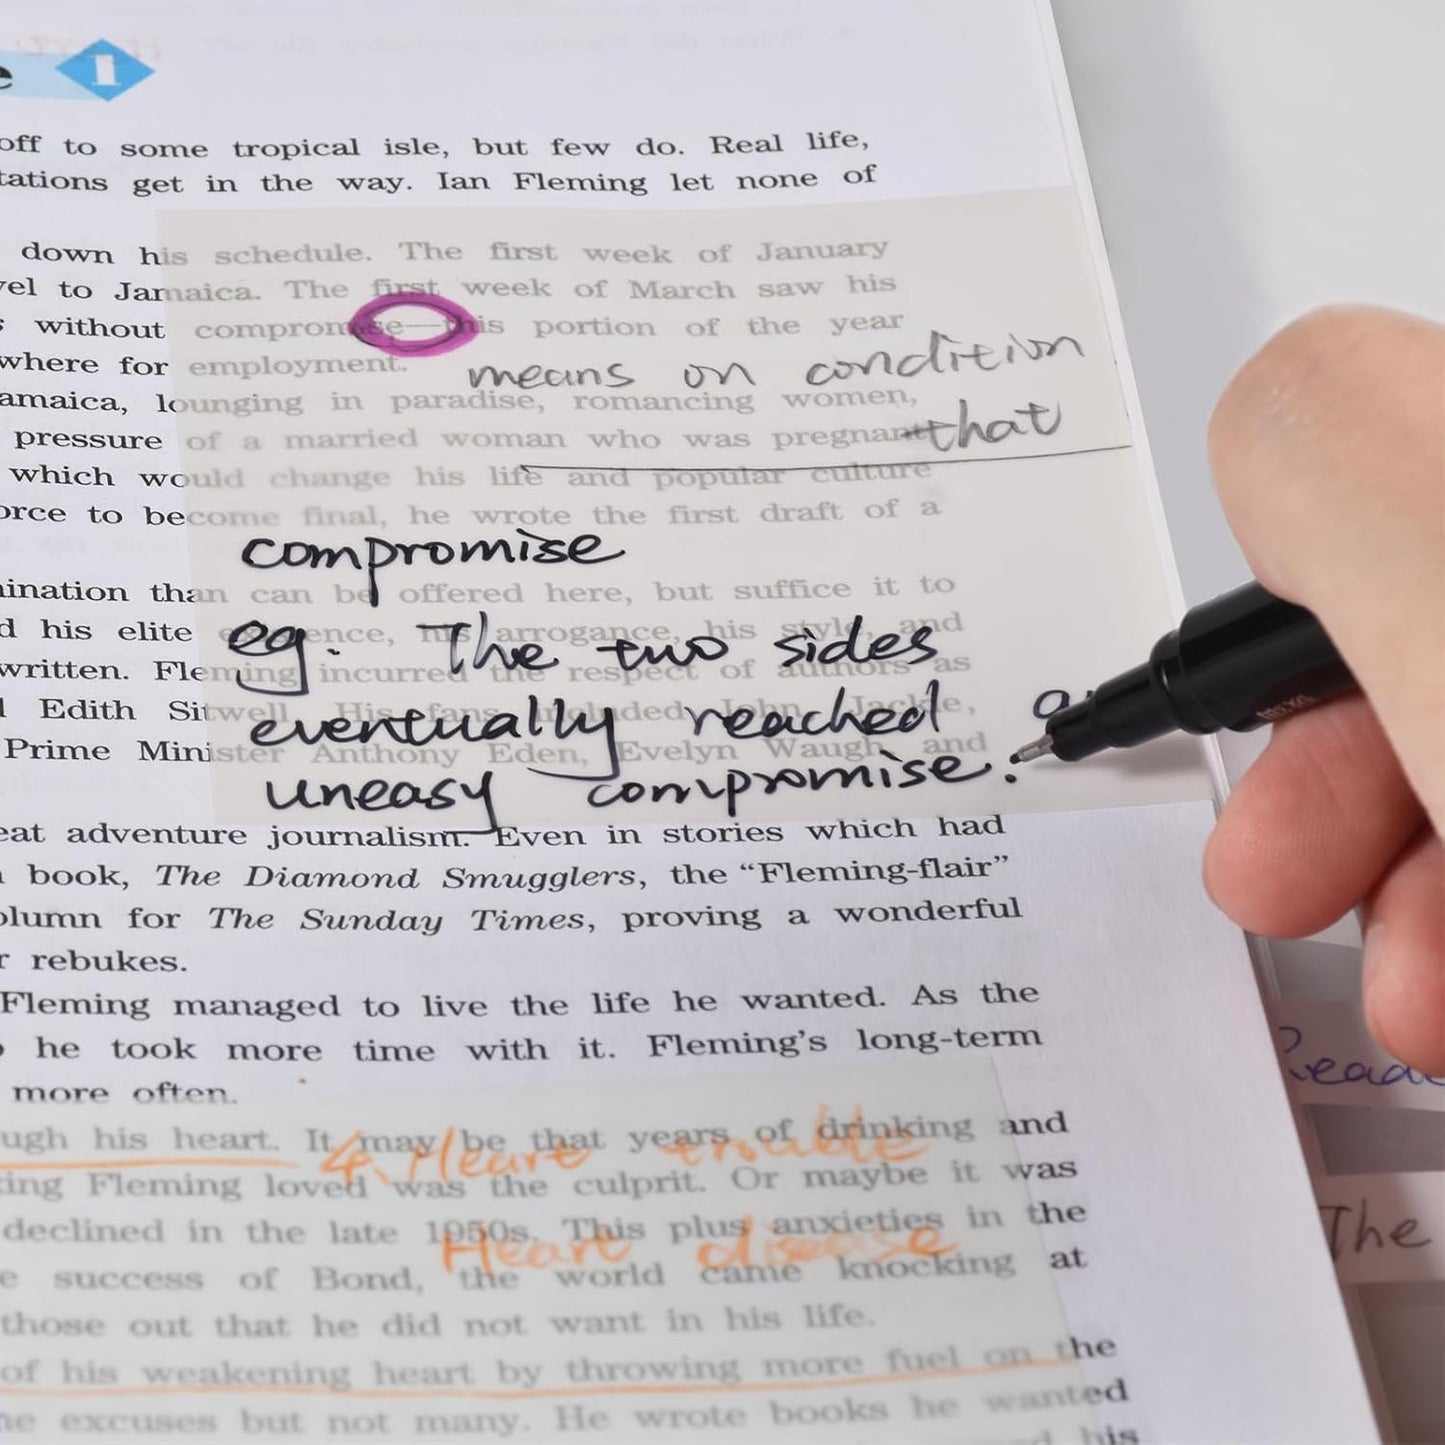 e 1
off to some tropical isle, but few do. Real life,
tations get in the way. Ian Fleming let none of
down his schedule. The first week of January
vel to Jamaica. The first week of March saw his
s without compromise—this portion of the year
where for employment.
means on condition
amaica, lounging in paradise, romancing women,
that
pressure of a married woman who was pregnant
which would change his life and popular culture
orce to become final, he wrote the first draft of a
compromise
ination than can be offered here, but suffice it to
d his elite his arrogance, his style, and
eg. The two sides
written. Fleming incurred the respect of authors as
d Edith Sitwell. His fans included John Jackie,
eventually reached a
Prime Minister Anthony Eden, Evelyn Waugh and
uneasy compromise.
eat adventure journalism. Even in stories which had
book, The Diamond Smugglers, the “Fleming-flair”
olumn for The Sunday Times, proving a wonderful
r rebukes.
Fleming managed to live the life he wanted. As the
o he took more time with it. Fleming's long-term
Read
more often.
ugh his heart. It may be that years of drinking and
4. Heart trouble
king Fleming loved was the culprit. Or maybe it was
declined in the late 1950s. This plus anxieties in the
The
Heart disease
e success of Bond, the world came knocking at
those out that he did not want in his life.
of his weakening heart by throwing more fuel on the
he excuses but not many. He wrote books he wanted
his